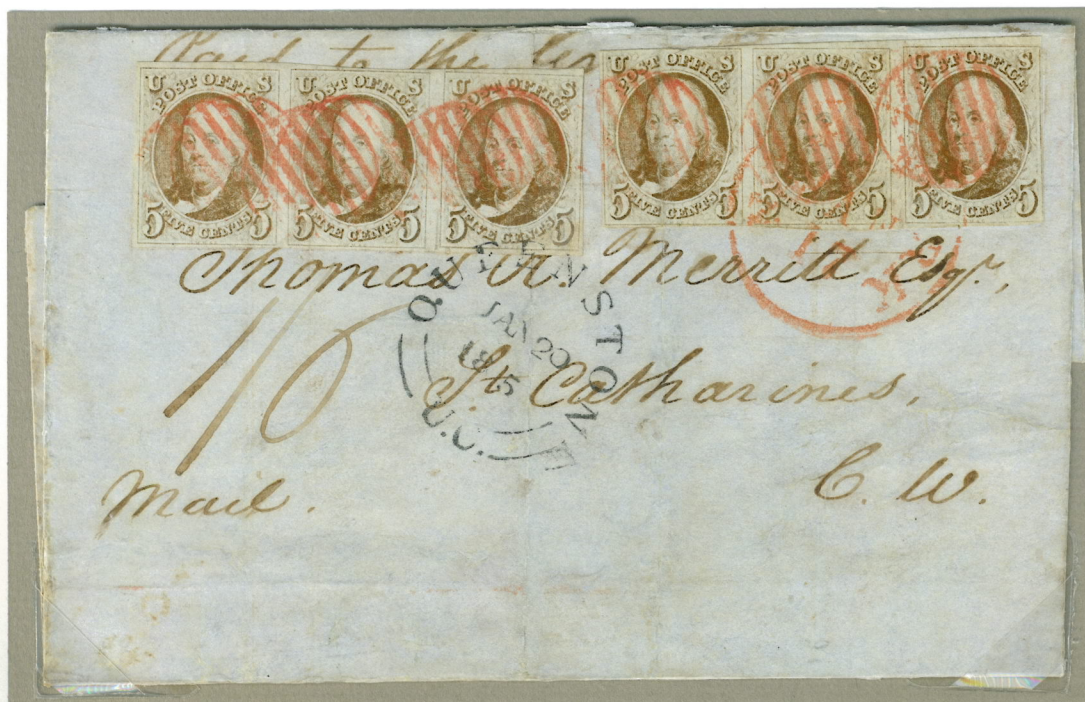 Paid to the
U S
POST OFFICE
5 FIVE CENTS 5
U S
POST OFFICE
5 FIVE CENTS 5
U S
POST OFFICE
5 FIVE CENTS 5
U S
POST OFFICE
5 FIVE CENTS 5
U S
POST OFFICE
5 FIVE CENTS 5
U S
POST OFFICE
5 FIVE CENTS 5
Thomas R. Merritt Esqr.,
17
QUEENSTOWN
JAN 20
U.C.
St. Catharines,
C. W.
Mail.